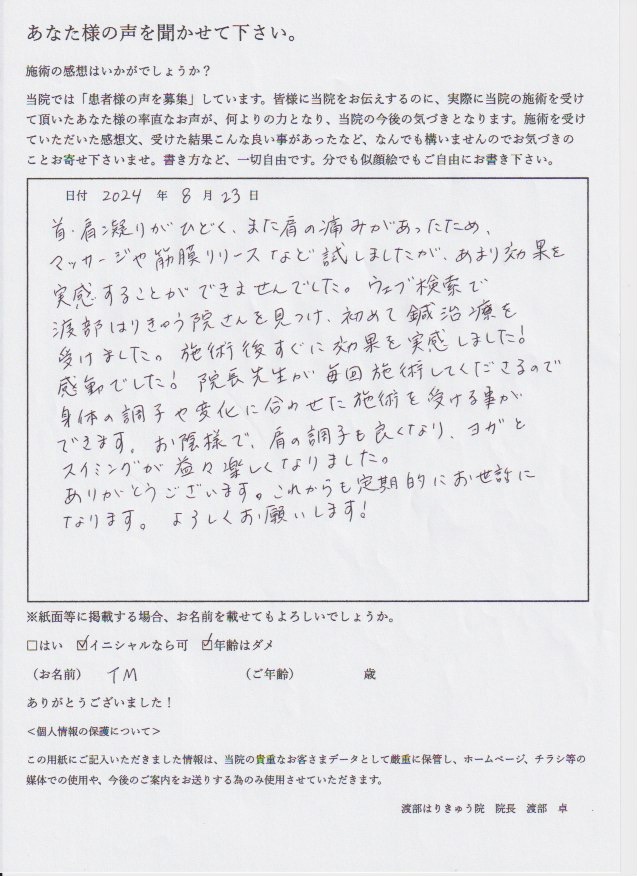 あなた様の声を聞かせて下さい。
施術の感想はいかがでしょうか？
当院では「患者様の声を募集」しています。皆様に当院をお伝えするのに、実際に当院の施術を受け
て頂いたあなた様の率直なお声が、何よりの力となり、当院の今後の気づきとなります。施術を受け
ていただいた感想文、受けた結果こんな良い事があったなど、なんでも構いませんのでお気づきの
ことお寄せ下さいませ。書き方など、一切自由です。分でも似顔絵でもご自由にお書き下さい。
日付 2024 年 8 月 23 日
首・肩凝りがひどく、また肩の痛みがあったため、
マッサージや筋膜リリースなど試しましたが、あまり効果を
実感することができませんでした。ウェブ検索で
渡部はりきゅう院さんを見つけ、初めて鍼治療を
受けました。施術後すぐに効果を実感しました！
感動でした！院長先生が毎回施術してくださるので
身体の調子や変化に合わせた施術を受ける事が
できます。お陰様で、肩の調子も良くなり、ヨガと
スイミングが益々楽しくなりました。
ありがとうございます。これからも定期的にお世話に
なります。よろしくお願いします！
※紙面等に掲載する場合、お名前を載せてもよろしいでしょうか。
□はい ☑イニシャルなら可 ☑年齢はダメ
（お名前） TM （ご年齢） 歳
ありがとうございました！
＜個人情報の保護について＞
この用紙にご記入いただきました情報は、当院の貴重なお客さまデータとして厳重に保管し、ホームページ、チラシ等の
媒体での使用や、今後のご案内をお送りする為のみ使用させていただきます。
渡部はりきゅう院 院長 渡部 卓